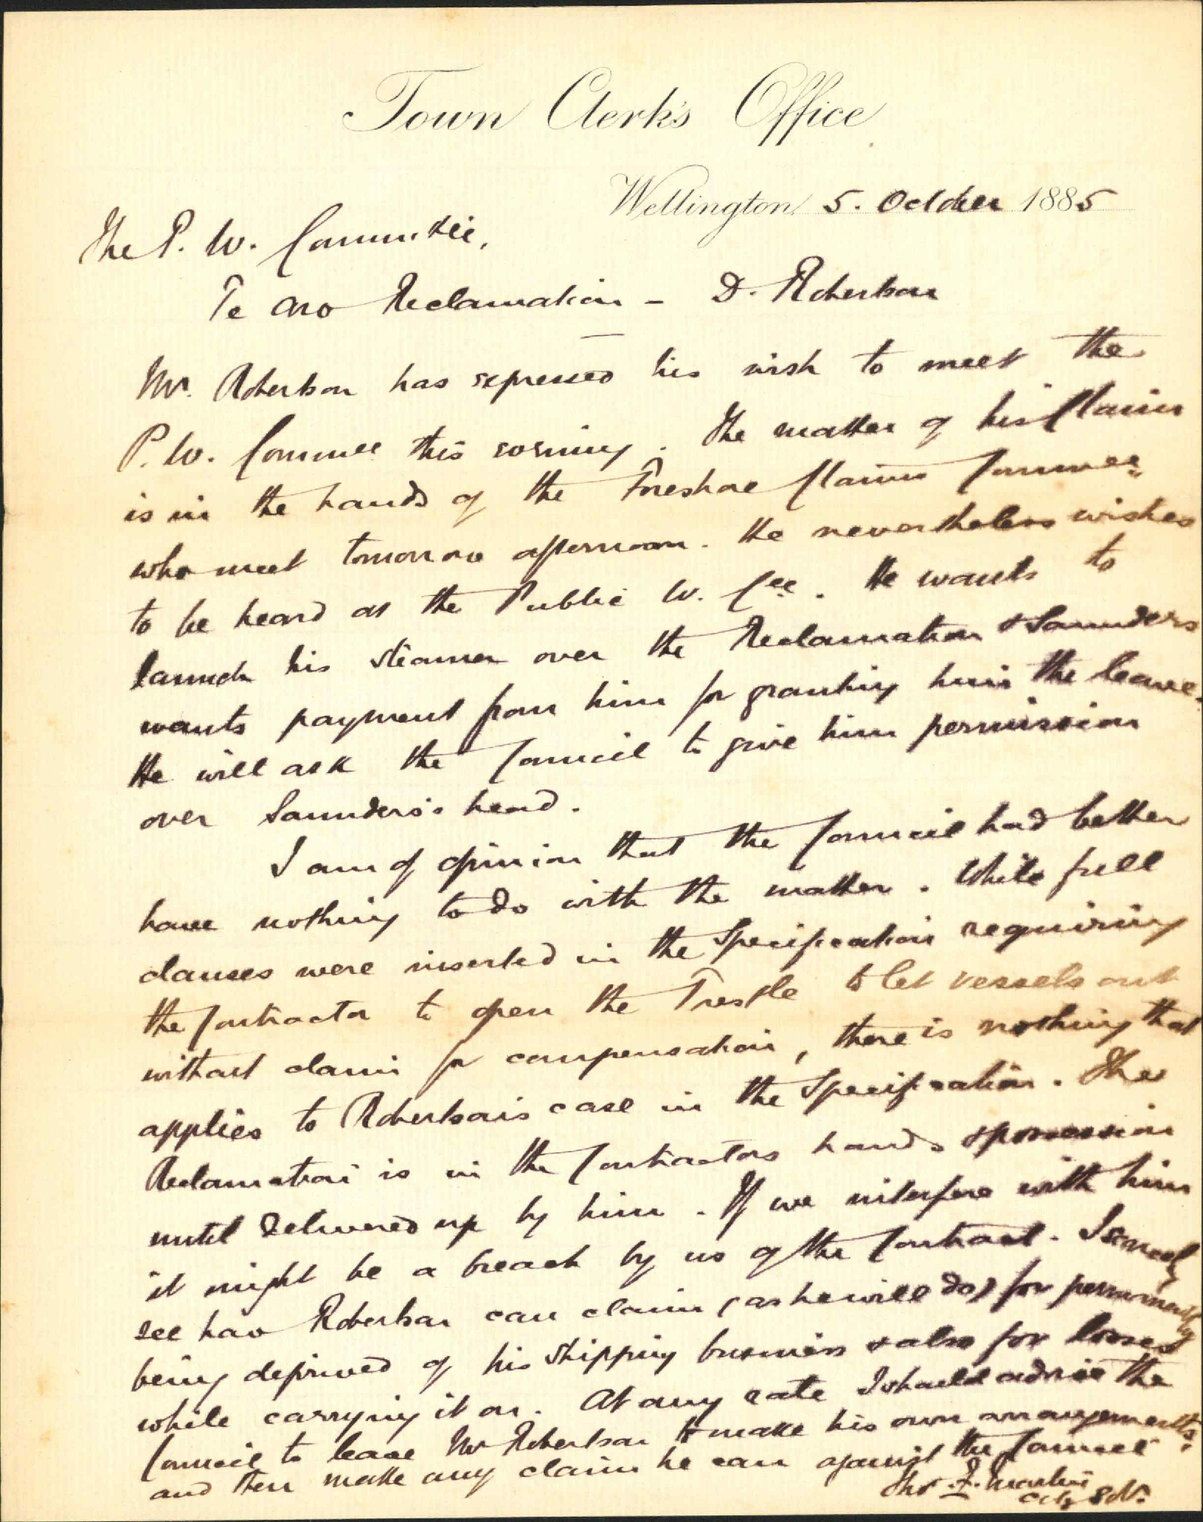 Town Clerk's Office
Wellington 5. October 1885
The P. W. Committee,
Te Aro Reclamation - D. Robertson
Mr. Robertson has expressed his wish to meet the
P. W. Commee this evening. The matter of his claim
is in the hands of the Foreshore Claims Commee
who meet tomorrow afternoon. He nevertheless wishes
to be heard at the Public W. Cee. He wants to
launch his steamer over the Reclamation & Saunders
wants payment from him for granting him the leave.
He will ask the Council to give him permission
over Saunders's head.
I am of opinion that the Council had better
have nothing to do with the matter. While full
clauses were inserted in the Specification requiring
the Contractor to open the Trestle to let vessels out
without claim for compensation, there is nothing that
applies to Robertson's case in the Specification. The
Reclamation is in the Contractors hands & possession
until delivered up by him. If we interfere with him
it might be a breach by us of the Contract. I scarcely
see how Robertson can claim (as he will do) for permanently
being deprived of his shipping business & also for losses
while carrying it on. At any rate I should advise the
Council to leave Mr Robertson to make his own arrangements
and then make any claim he can against the Council
Thos. F. Martin
City Sol.